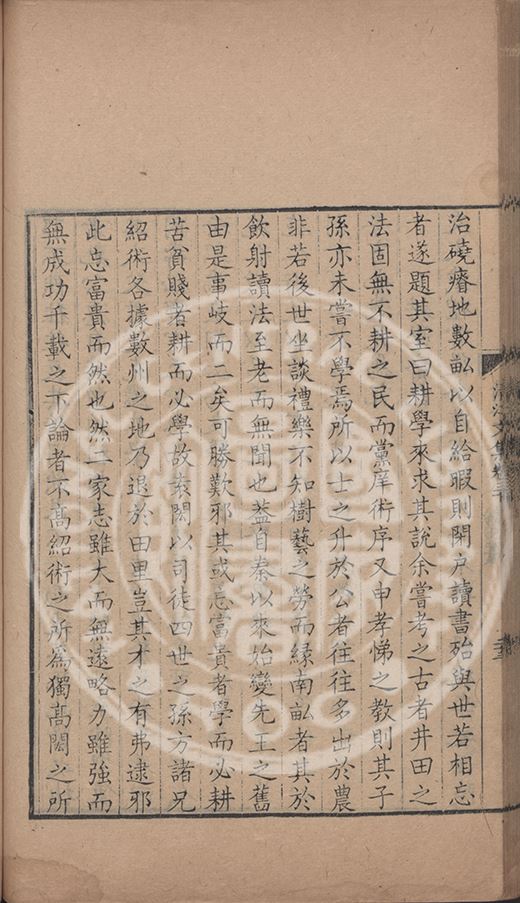 治磽瘠地數畝以自給暇則閉户讀書殆與世若相忘
者遂題其室曰耕學來求其說余嘗考之古者井田之
法固無不耕之民而黨庠術序又申孝悌之教則其子
孫亦未嘗不學焉所以士之升於公者往往多出於農
非若後世坐談禮樂不知樹藝之勞而緣南畝者其於
飲射讀法至老而無聞也葢自秦以來始變先王之舊
由是事岐而二矣可勝歎邪其或忘富貴者學而必耕
苦貧賤者耕而必學故袁閎以司徒四世之孫方諸兄
紹術各據數州之地乃退於田里豈其才之有弗逮邪
此忘富貴而然也然二家志雖大而無遠略力雖強而
無成功千載之下論者不高紹術之所為獨高閎之所